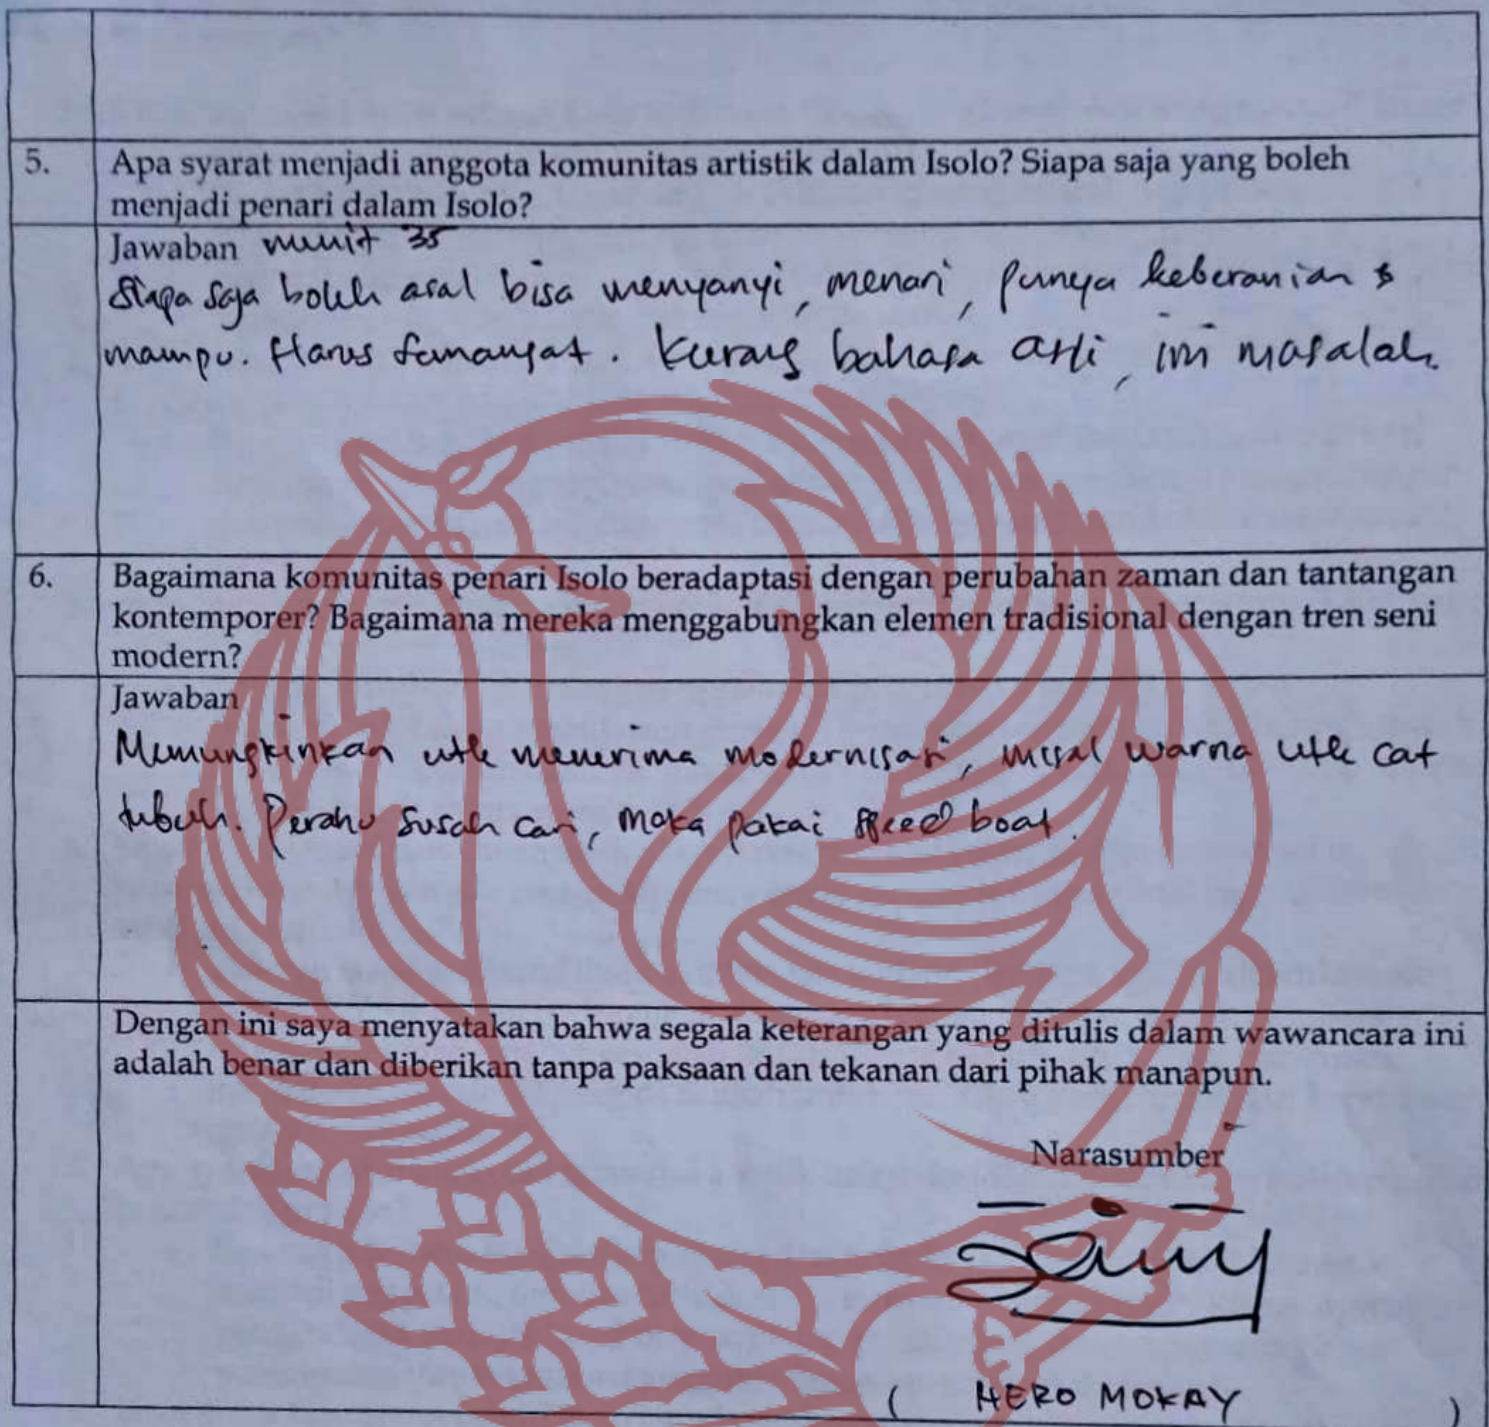 5. Apa syarat menjadi anggota komunitas artistik dalam Isolo? Siapa saja yang boleh
menjadi penari dalam Isolo?
Jawaban menit 35
Siapa saja boleh asal bisa menyanyi, menari, punya keberanian &
mampu. Harus semangat. Kurang bahasa asli, ini masalah.
6. Bagaimana komunitas penari Isolo beradaptasi dengan perubahan zaman dan tantangan
kontemporer? Bagaimana mereka menggabungkan elemen tradisional dengan tren seni
modern?
Jawaban
Memungkinkan utk menerima modernisasi, misal warna utk cat
tubuh. Perahu susah cari, maka pakai speed boat.
Dengan ini saya menyatakan bahwa segala keterangan yang ditulis dalam wawancara ini
adalah benar dan diberikan tanpa paksaan dan tekanan dari pihak manapun.
Narasumber
( HERO MOKAY )